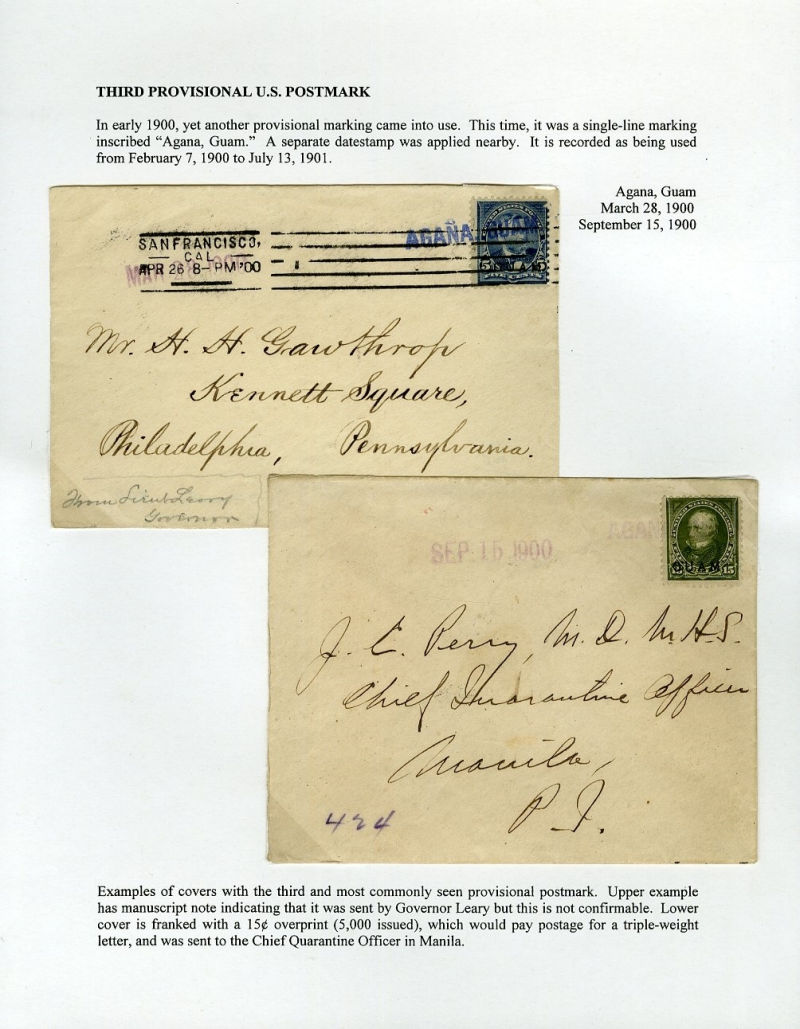 THIRD PROVISIONAL U.S. POSTMARK
In early 1900, yet another provisional marking came into use. This time, it was a single-line marking
inscribed “Agana, Guam.” A separate datestamp was applied nearby. It is recorded as being used
from February 7, 1900 to July 13, 1901.
Agana, Guam
March 28, 1900
September 15, 1900
AGAÑA, GUAM
SAN FRANCISCO,
CAL
APR 26 8-PM '00
MAR 1900
GUAM
Mr. H. H. Gawthrop
Kennett Square,
Philadelphia, Pennsylvania.
From Lieut Leary
Governor
SEP 15 1900
AGAN
GUAM
15
J. C. Perry, M. D. M. H. S.
Chief Quarantine Officer
Manila,
P. I.
424
Examples of covers with the third and most commonly seen provisional postmark. Upper example
has manuscript note indicating that it was sent by Governor Leary but this is not confirmable. Lower
cover is franked with a 15¢ overprint (5,000 issued), which would pay postage for a triple-weight
letter, and was sent to the Chief Quarantine Officer in Manila.